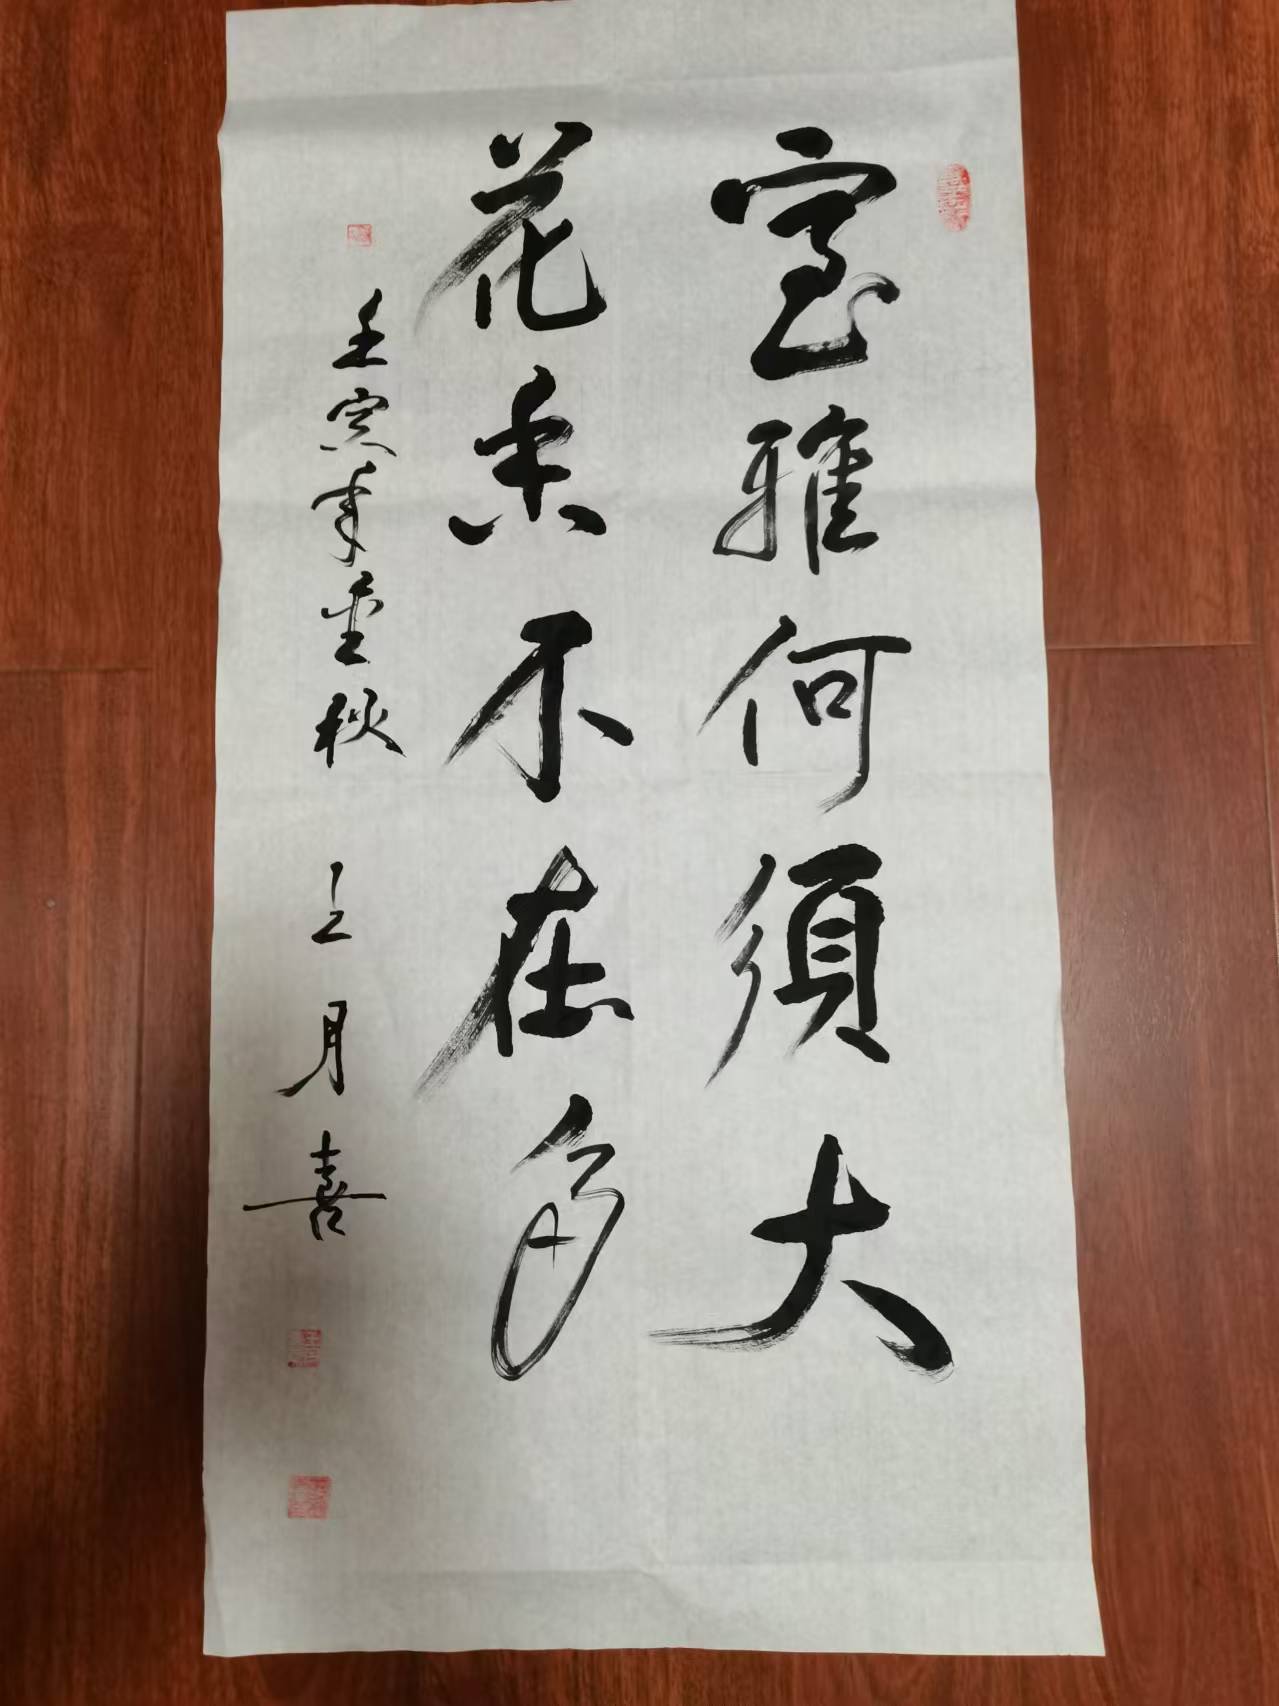 室雅何須大
花香不在多
壬寅年金秋 王月喜